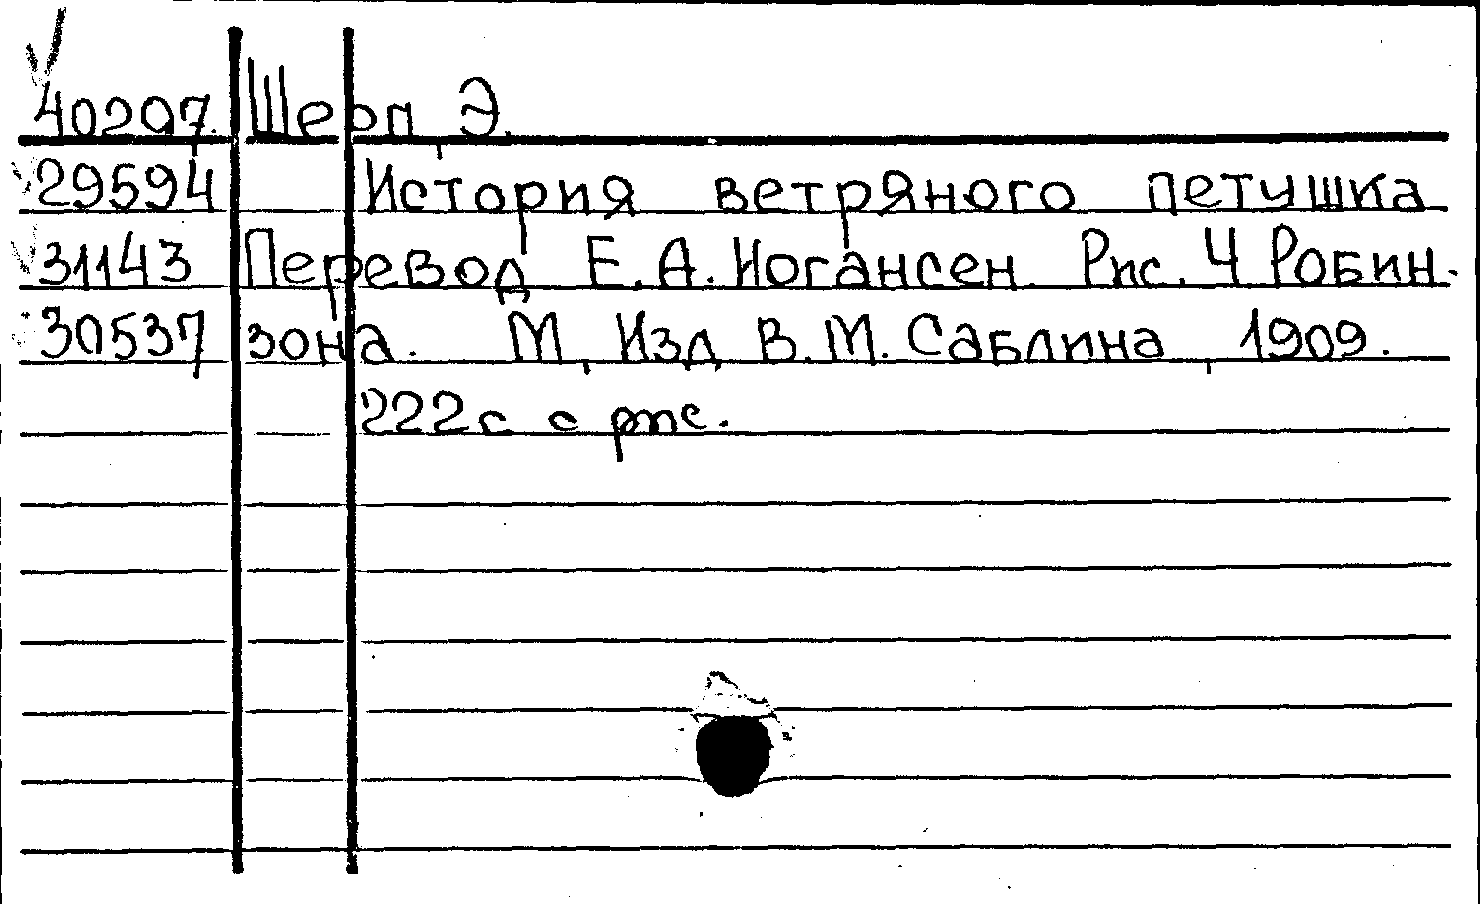 40207. Шерп, Э.
29594 История ветряного петушка
31143 Перевод Е. А. Иогансен. Рис. Ч. Робин-
30537 зона. М., Изд. В. М. Саблина, 1909.
222 с. с рис.